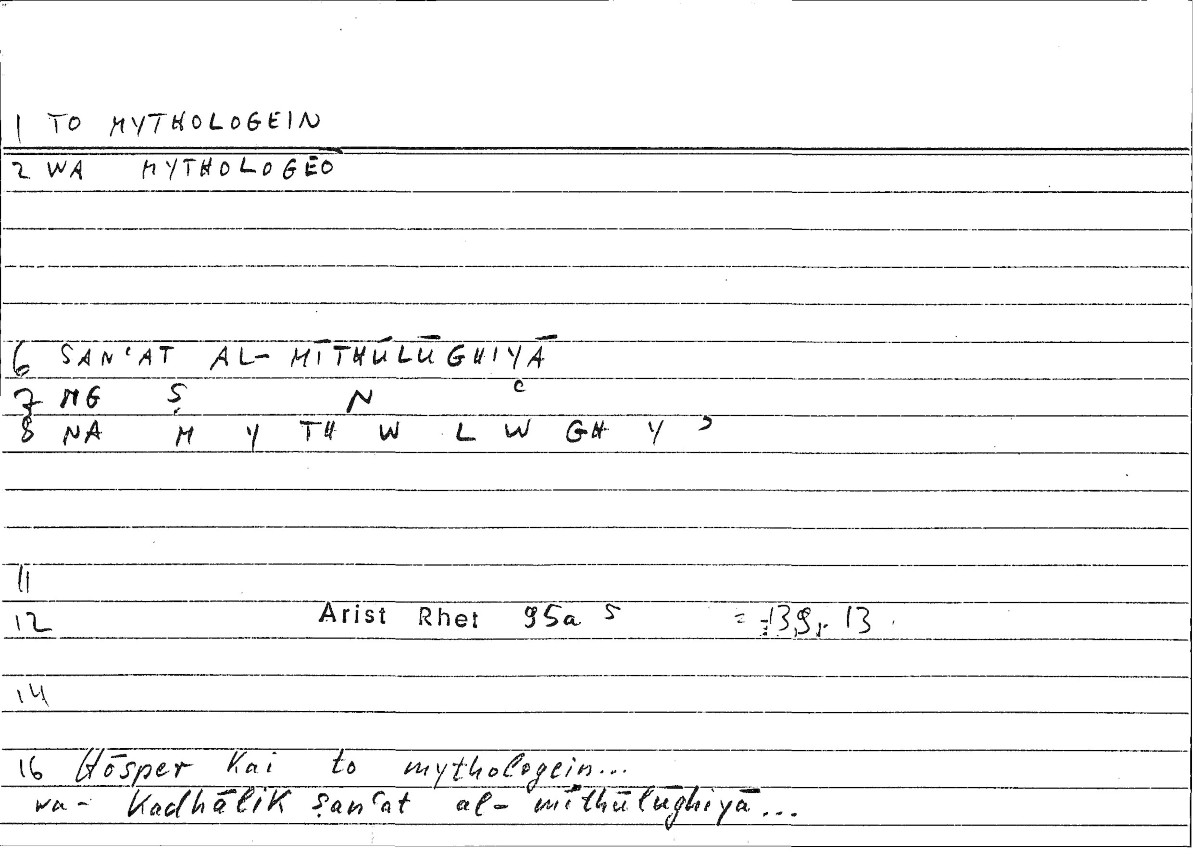 1 TO MYTHOLOGEIN
2 WA MYTHOLOGEŌ
6 SAN‘AT AL- MĪTHŪLŪGHIYĀ
7 MG Ṣ N ʿ
8 NA M Y TH W L W GH Y ʾ
11
12 Arist Rhet 95a 5 = 139, 13
14
16 Hōsper kai to mythologein...
wa- kadhālik ṣan‘at al- mīthūlūghiyā...